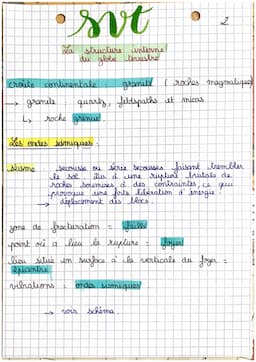 svt
2
La structure interne
du globe terrestre
croûte continentale granite (roches magmatiques)
→ granite : quartz, feldspaths et micas
↳ roche grenue.
Les ondes sismiques :
séisme : secousse ou série secousses faisant trembler
le sol. Dû à une rupture brutale de
roches soumises à des contraintes, ce qui
provoque une forte libération d'énergie.
→ déplacement des blocs.
zone de fracturation = faille
point où a lieu la rupture = foyer
lieu situé en surface à la verticale du foyer =
épicentre
vibrations = ondes sismiques
→ voir schéma.